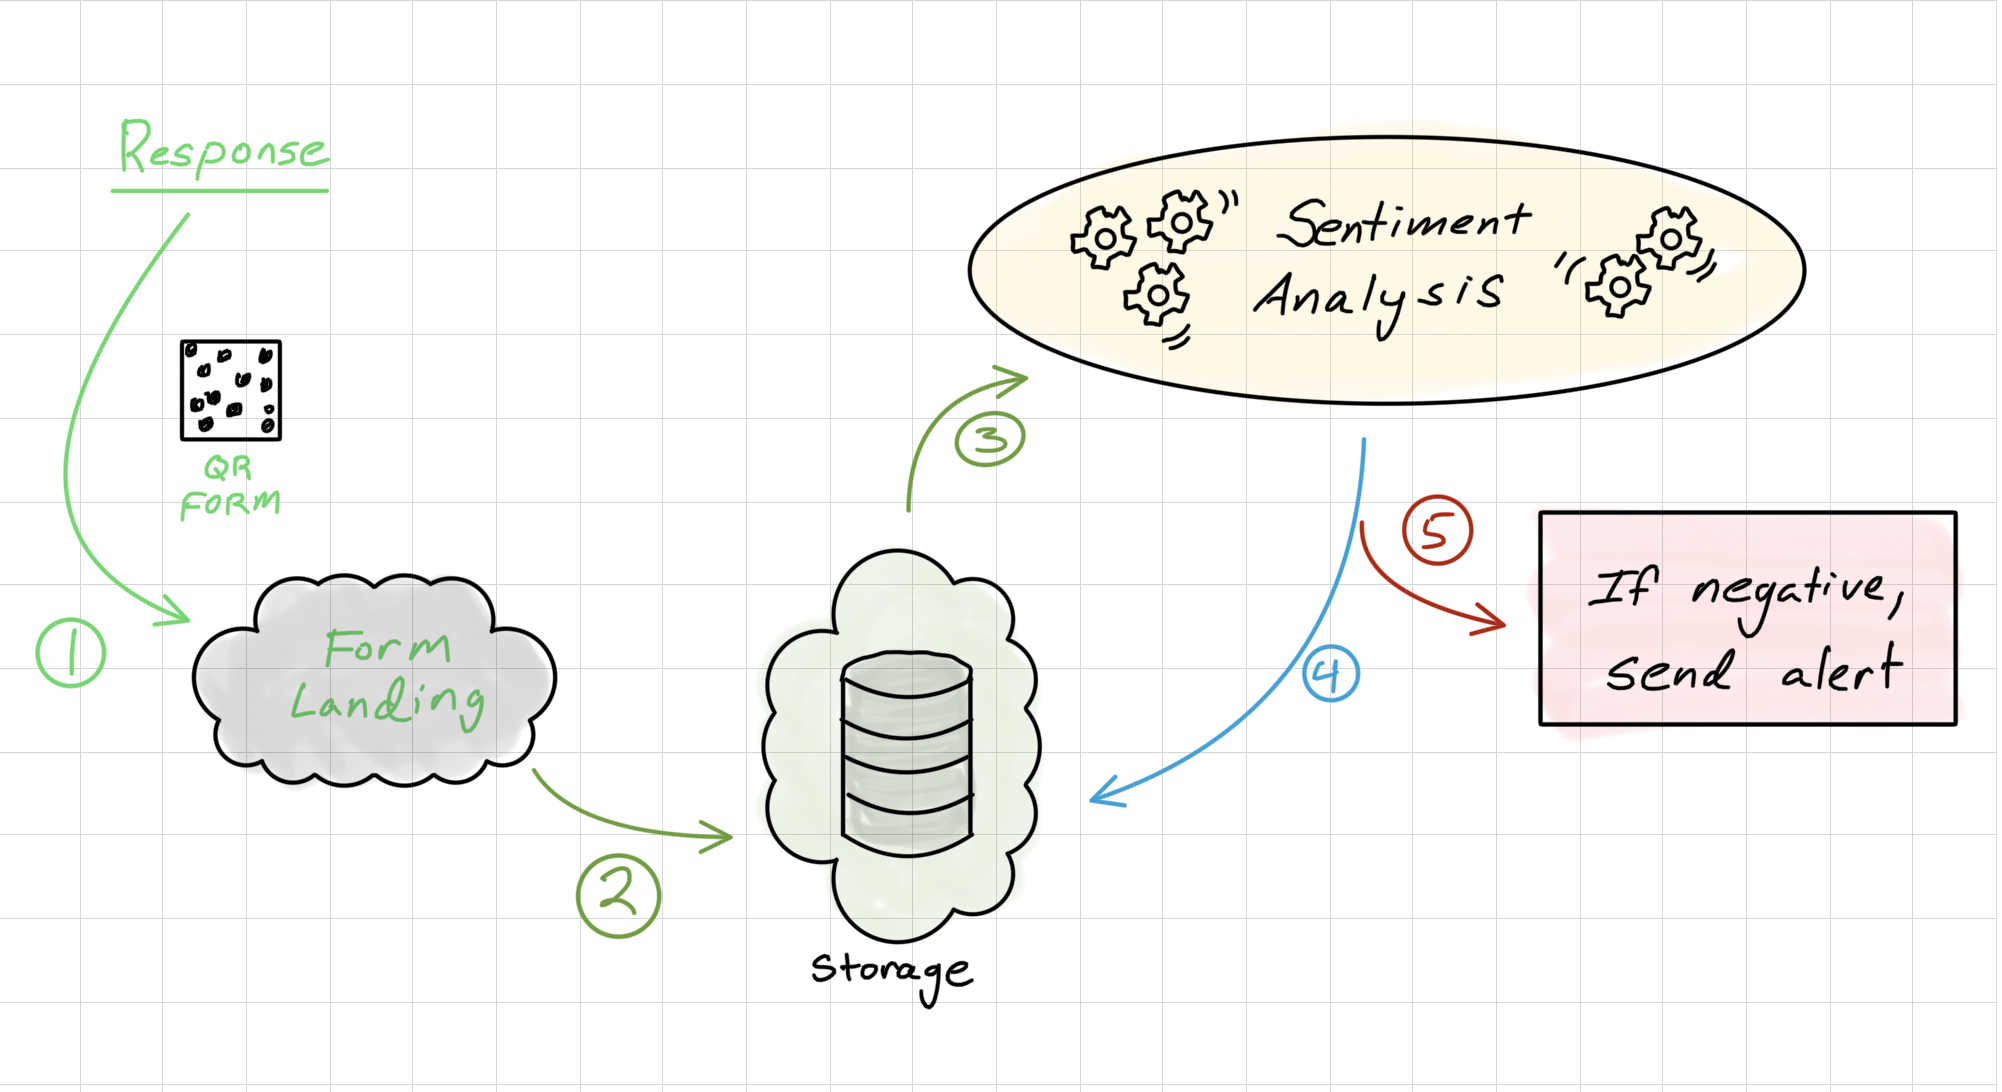 Response
QR
FORM
1
Form
Landing
2
Storage
3
Sentiment
Analysis
4
5
If negative,
send alert